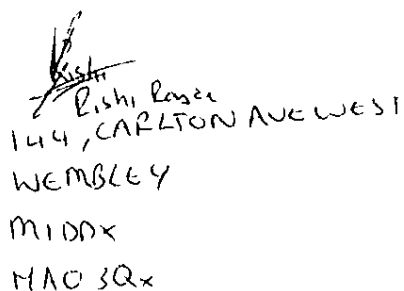 Rishi
Rishi
144, CARLTON AVE WEST
WEMBLEY
MIDDX
HA0 3QX